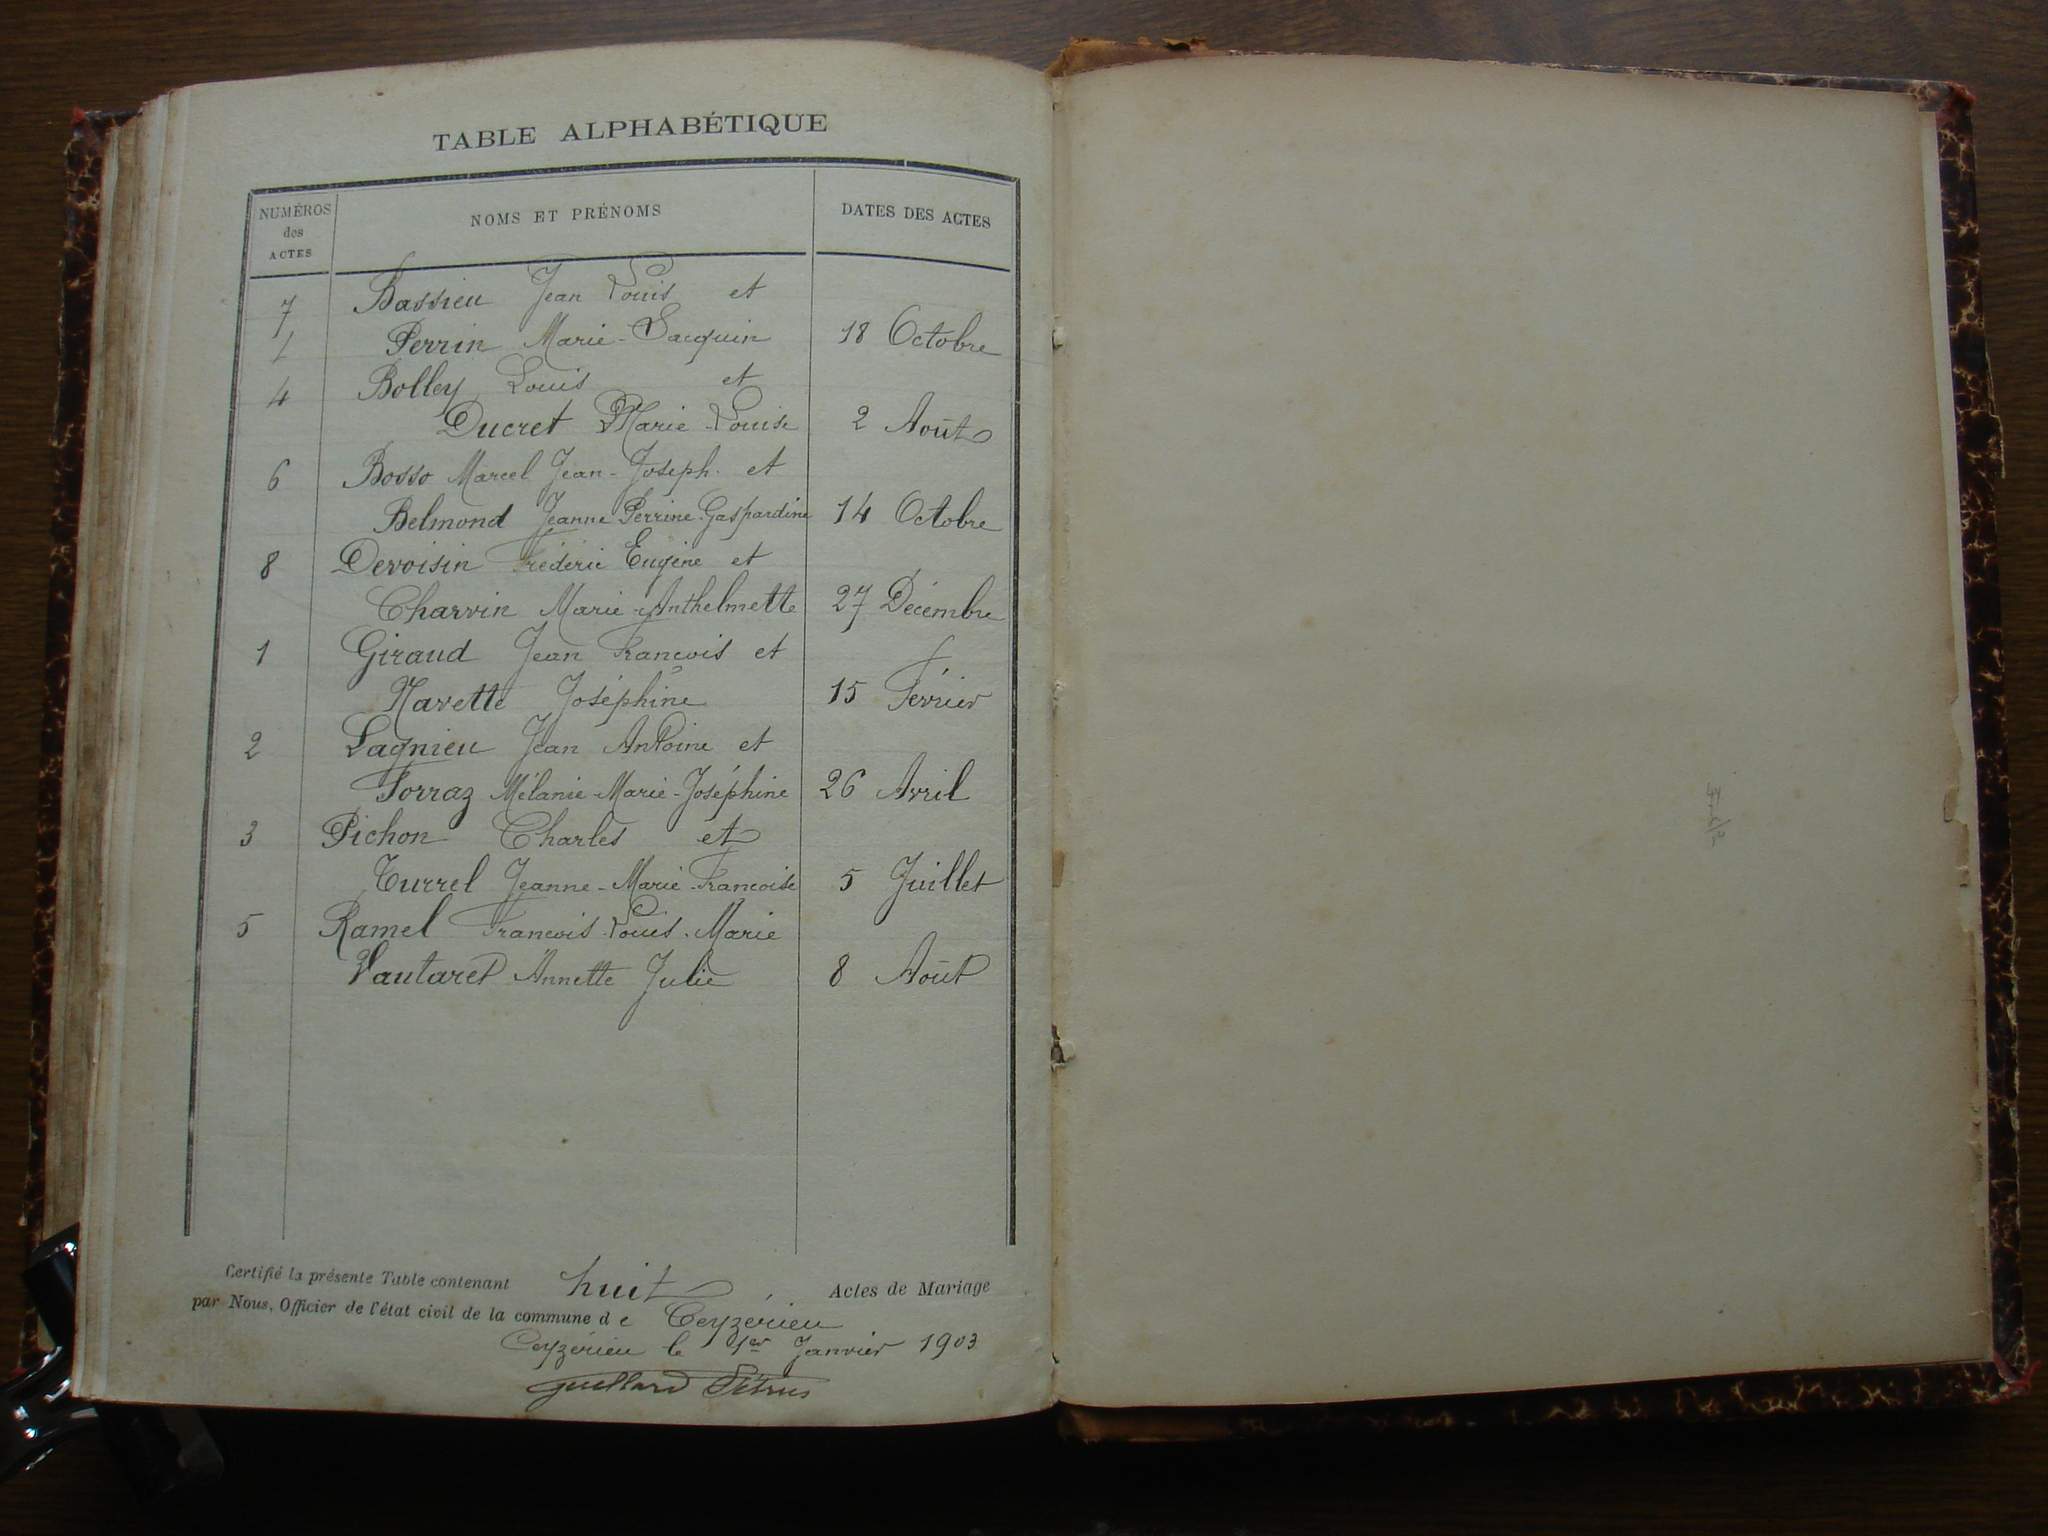 TABLE ALPHABÉTIQUE
NUMÉROS des ACTES NOMS ET PRÉNOMS DATES DES ACTES
7 Bassieu Jean Louis et
Perrin Marie-Jacquin 18 Octobre
4 Bolley Louis et
Ducret Marie-Louise 2 Août
6 Bosso Marcel Jean-Joseph et
Belmond Jeanne Perrine Gaspardine 14 Octobre
8 Devoisin Frédéric Eugène et
Charvin Marie-Anthelmette 27 Décembre
1 Giraud Jean François et
Navette Joséphine 15 Février
2 Lagnieu Jean Antoine et
Forraz Mélanie-Marie-Joséphine 26 Avril
3 Pichon Charles et
Turrel Jeanne-Marie-Françoise 5 Juillet
5 Ramel François-Louis-Marie
Vautaret Annette Julie 8 Août
Certifié la présente Table contenant huit Actes de Mariage
par Nous, Officier de l'état civil de la commune de Ceyzérieu
Ceyzérieu le 1er Janvier 1903